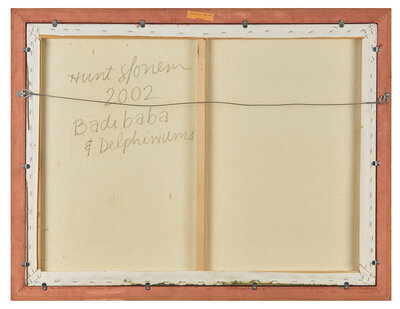 Hunt Slonem
2002
Badi baba
& Delphiniums